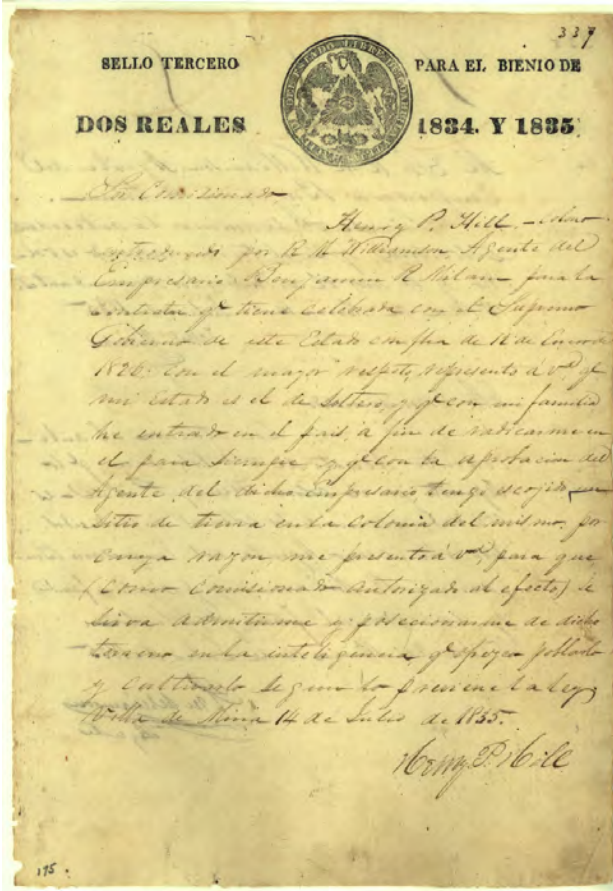 337
SELLO TERCERO PARA EL BIENIO DE
DOS REALES 1834. Y 1835
Sor. Comisionado
Henry P. Hill, colono
introducido por R M Williamson Agente del
Empresario Benjamin R Milam para la
contrata qe tiene celebrada con el Supremo
Gobierno de este Estado con fha de 12 de Enero de
1826. Con el mayor respeto, represento á vd qe
mi Estado es el de Soltero y qe con mi familia
he entrado en el pais, a fin de radicarme en
el para siempre y qe con la aprobacion del
Agente del dicho empresario tengo escojido un
sitio de tierra en la colonia del mismo, por
cuya razon, me presento á vd, para que
(como comisionado autorizado al efecto) se
sirva admitirme y posecionarme de dicho
terreno en la inteligencia qe ofrezco poblarlo
y cultivarlo segun lo previene la ley
Villa de Mina 14 de Julio de 1835.
Henry P. Hill
195